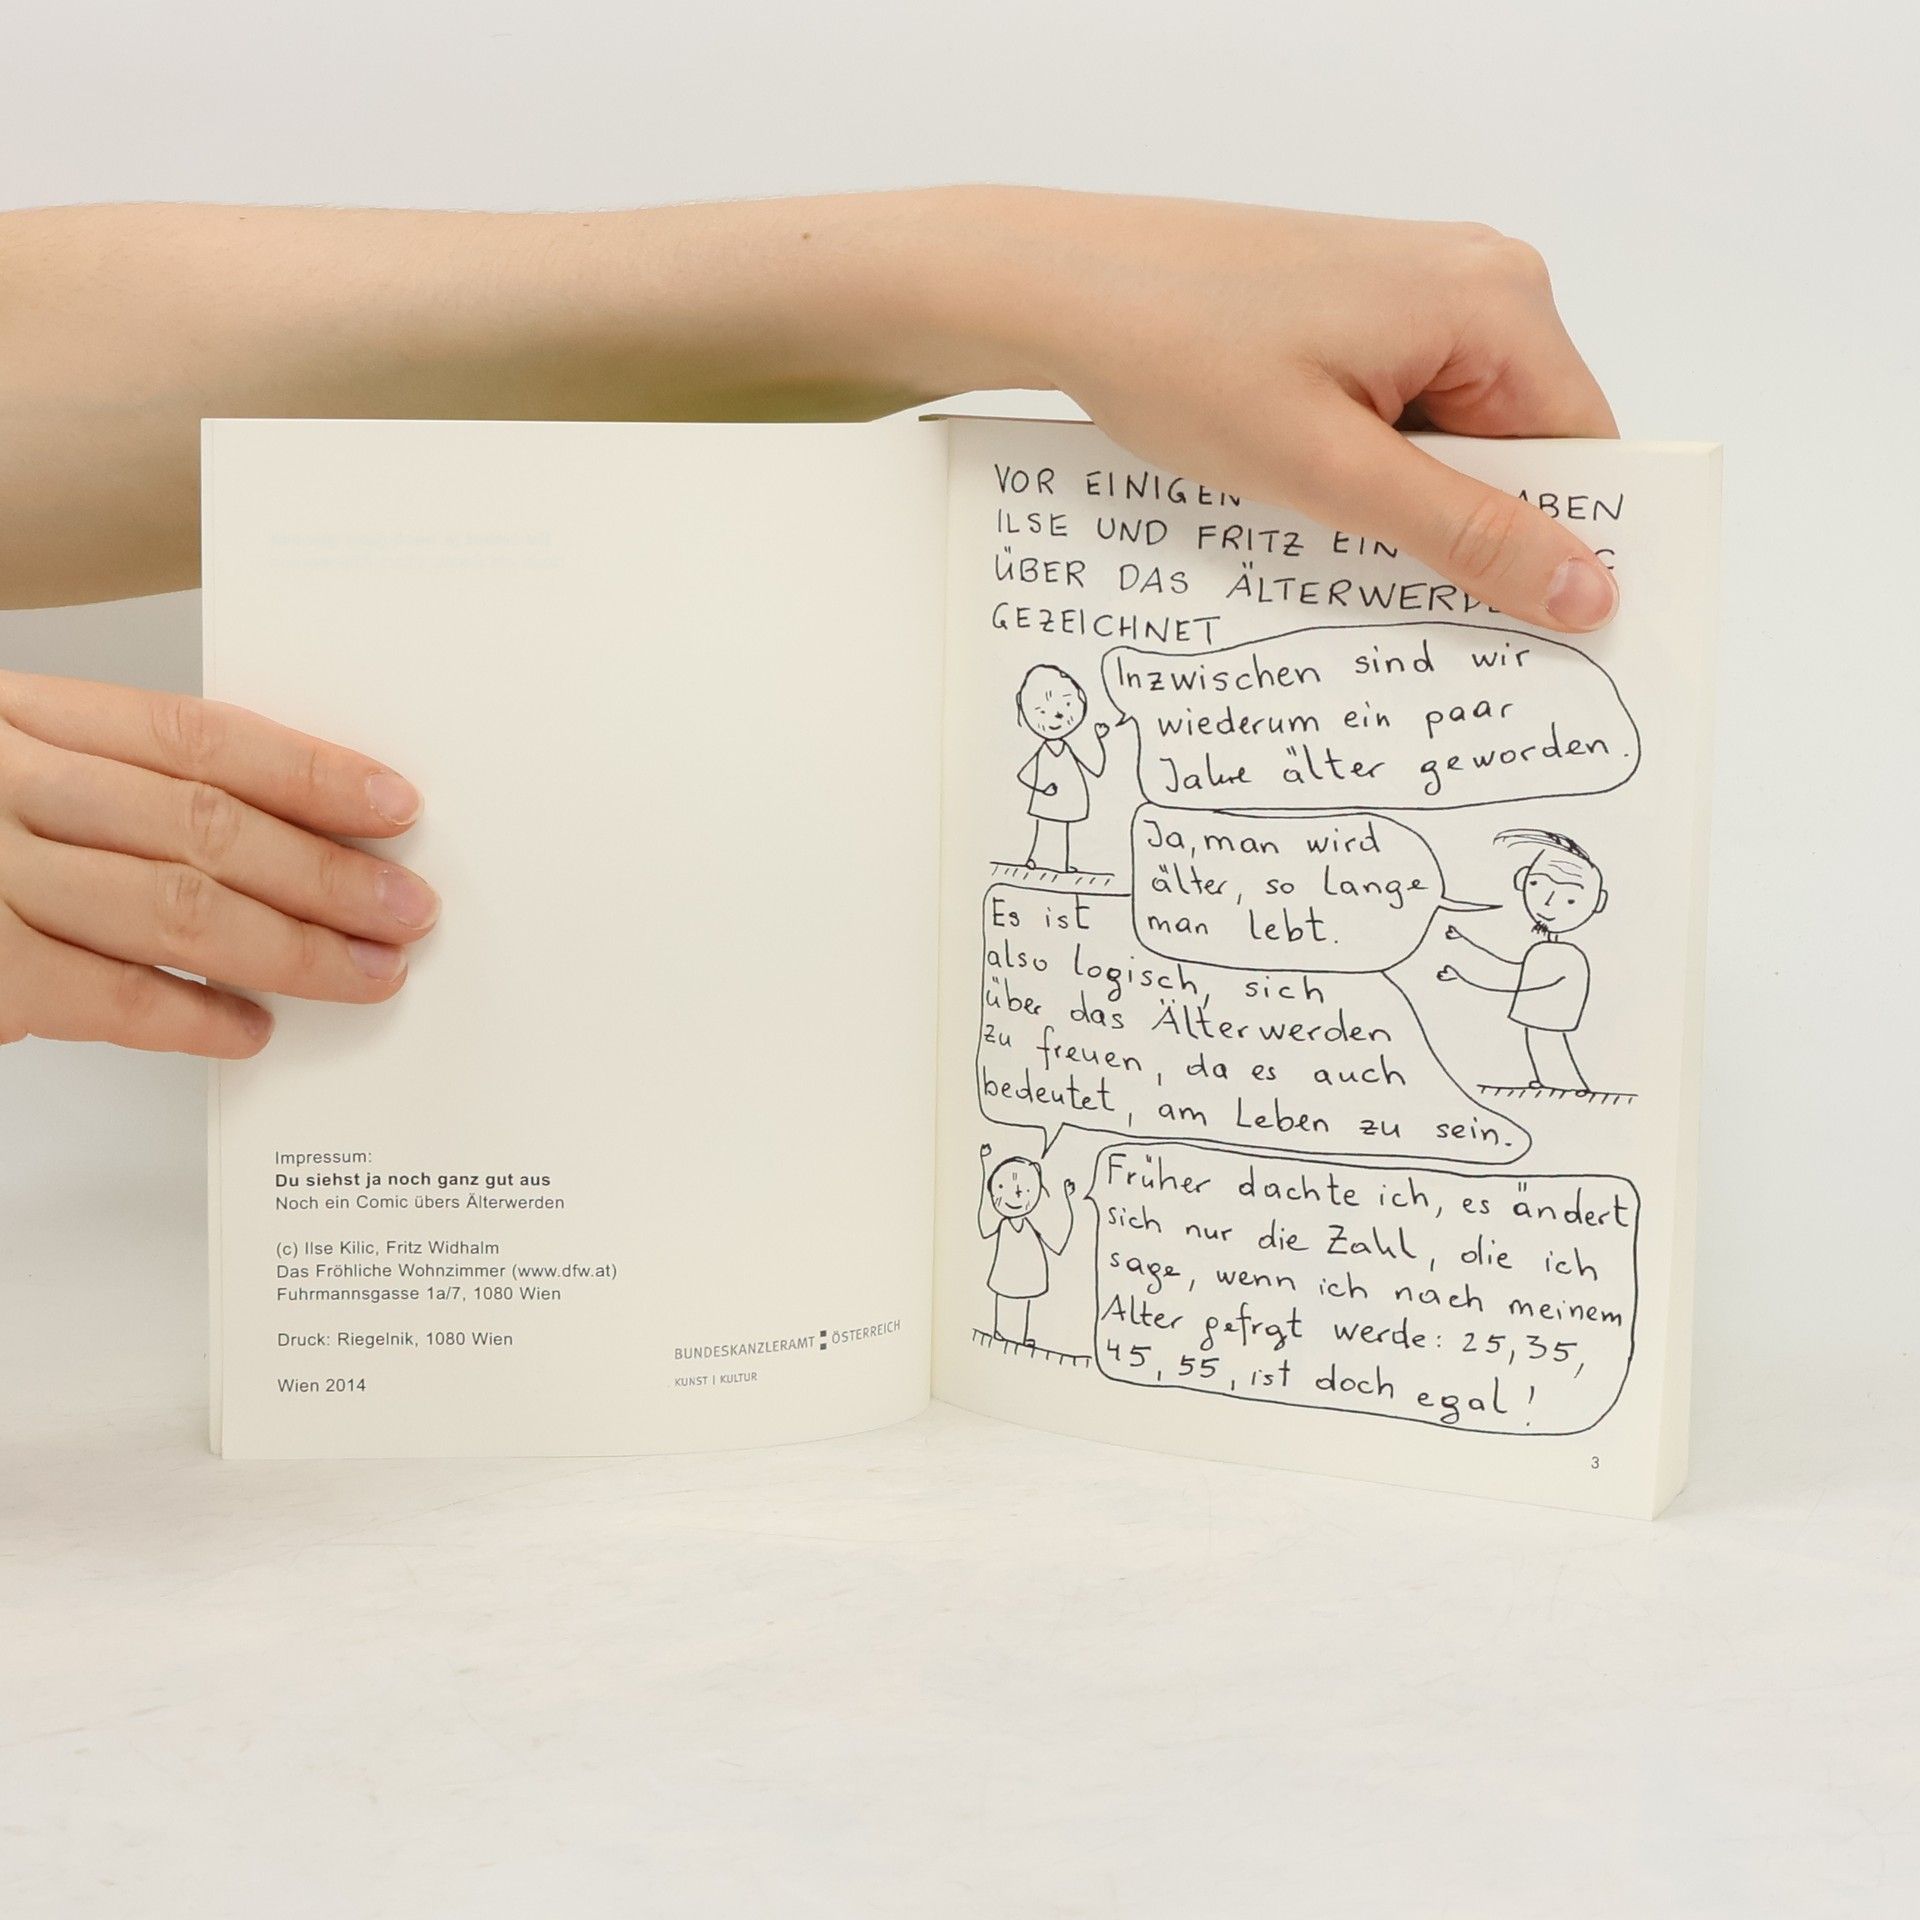 Impressum:
Du siehst ja noch ganz gut aus
Noch ein Comic übers Älterwerden
(c) Ilse Kilic, Fritz Widhalm
Das Fröhliche Wohnzimmer (www.dfw.at)
Fuhrmannsgasse 1a/7, 1080 Wien
Druck: Riegelnik, 1080 Wien
Wien 2014
BUNDESKANZLERAMT ÖSTERREICH
KUNST | KULTUR
VOR EINIGEN
ILSE UND FRITZ
ÜBER DAS
GEZEICHNET
Inzwischen sind wir
wiederum ein paar
Jahre älter geworden.
Ja, man wird
älter, so lange
man lebt.
Es ist
also logisch, sich
über das Älterwerden
zu freuen, da es auch
bedeutet, am Leben zu sein.
Früher dachte ich, es ändert
sich nur die Zahl, die ich
sage, wenn ich nach meinem
Alter gefrgt werde: 25, 35,
45, 55, ist doch egal!
3